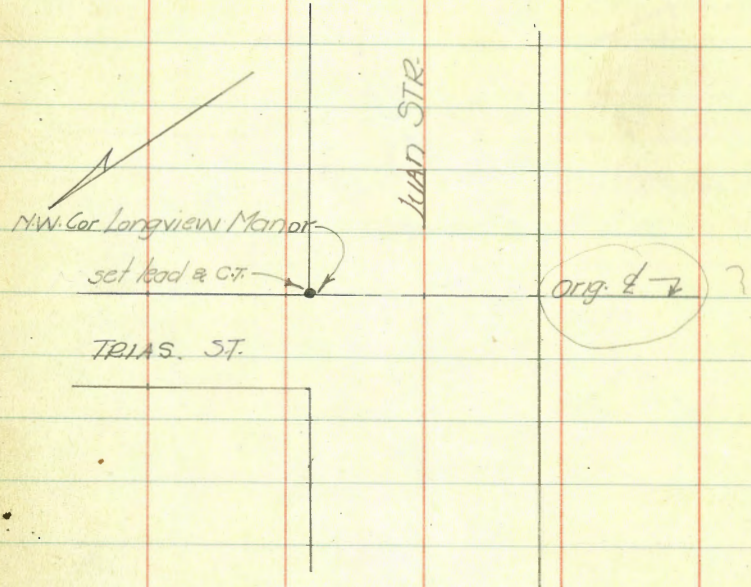 JUAN STR.
N.W. Cor Longview Manor
set lead & C.T.
orig. ℄ ?
TRIAS. ST.